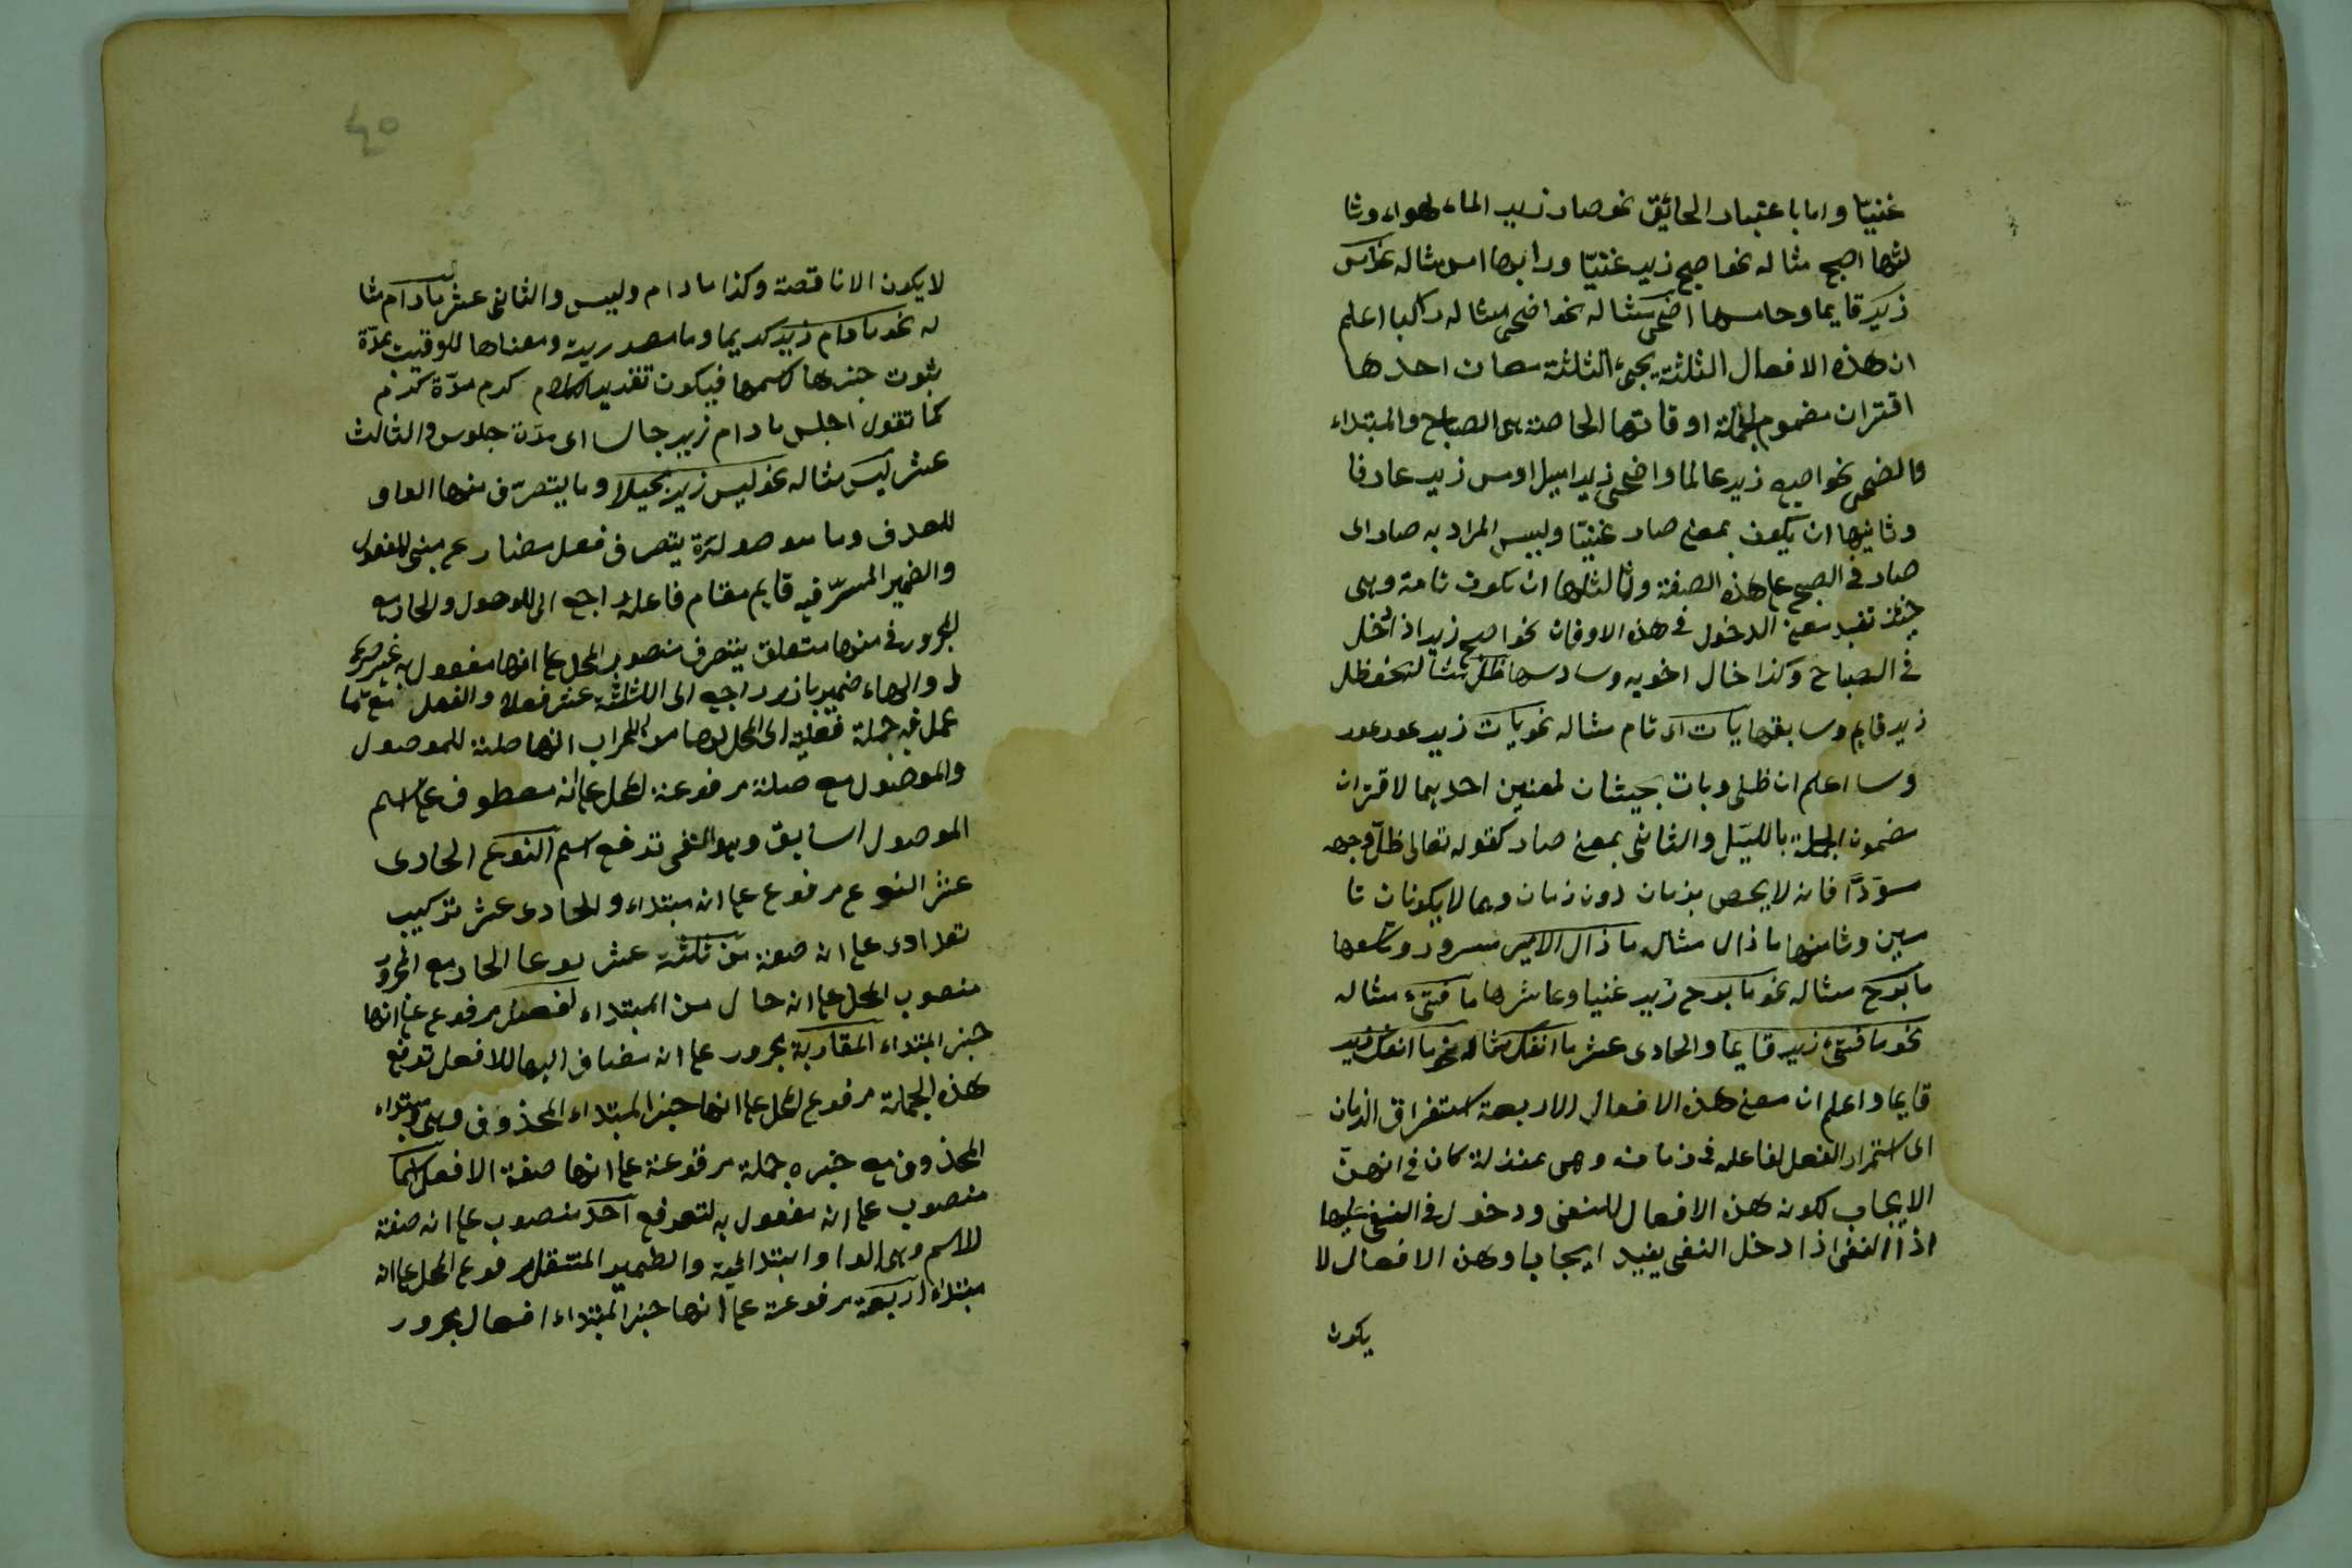 غنيّا واما باعتبار الحائق نحو صار زيد الماء هواء وثا
لثها اصبح مثاله نحو اصبح زيد غنيّا ورابعها امس مثاله نحو امس
زيد قايما وخامسها اضحى مثاله نحو اضحى مثاله راكبا اعلم
ان هذه الافعال الثلثة يجئ الثلثة معان احدها
اقتران مضمون الجملة اوقاتها الخاصة هى الصباح والمبتداء
والضحى نحو اصبح زيد عالما واضحى زيد اميرا وامس زيد عارفا
وثانيها ان يكون بمعنى صار غنيّا وليس المراد به صار اى
صار فى الصبح على هذه الصفة وثالثها ان تكون تامة وهى
حينئذ تفيد معنى الدخول فى هذه الاوقات نحو اصبح زيد اذا دخل
فى الصباح وكذا خال اخويه وسادسها ظل مثاله نحو ظل
زيد قايم وسابعها بات اى نام مثاله نحو بات زيد
وسا اعلم ان ظل وبات يجيئان لمعنيين احديهما لاقتران
مضمون الجملة بالليل والثانى بمعنى صار كقوله تعالى ظلّ وجهه
مسودّاً فانه لا يحص بزمان دون زمان وهما لا يكونان تا
مين وثامنها ما زال مثاله ما زال الامير مسرور وتاسعها
ما برح مثاله نحو ما برح زيد غنيا وعاشرها ما فتئ مثاله
نحو ما فتئ زيد قايما والحادى عشر ما انفك مثاله نحو ما انفك زيد
قايما واعلم ان معنى هذه الافعال الاربعة استغراق الزمان
اى استمرار الفعل لفاعله فى زمانه وهى بمنزلة كان فى انهن
الايجاب لكون هذه الافعال للنفى ودخول فى النفى عليها
اذ النفى اذا دخل النفى يفيد ايجابا وهذه الافعال لا
يكون
٤٥
لا يكون الا ناقصة وكذا ما دام وليس والثانى عشر ما دام مثا
له نحو ما دام زيد كريما وما مصدرية ومعناها للوقيت بمدّة
ثبوت خبرها لاسمها فيكون تقدير الكلام كرم مدّة كرم
كما تقول اجلس ما دام زيد جالسا اى مدّة جلوس والثالث
عشر ليس مثاله نحو ليس زيد بخيلا وما يتصرّف منها الواو
للعطف وما موصولة يتصرف فعل مضارع مبنى للمفعول
والضمير المستتر فيه قايم مقام فاعله راجع الى الموصول والجار مع
المجرور فى منها متعلق يتصرف منصوب المحل على انها مفعول به غير صريح
له والهاء ضمير بارز راجع الى الثلثة عشر فعلا والفعل مع ما
عمل فيه جملة فعلية لا محل لها من الاعراب انها صلة للموصول
والموصول مع صلته مرفوعة المحل على انه معطوف على اسم
الموصول السابق وهو التى ترفع اسم النوع الحادى
عشر النوع مرفوع على انه مبتداء والحادى عشر تركيب
تعدادى على انه صفة من ثلثة عشر نوعا الجار مع المجرور
منصوب المحل على انه حال من المبتداء افعال مرفوع على انها
خبر المبتداء المقاربة مجرور على انه مضاف اليها للافعال ترفع
هذه الجملة مرفوع المحل على انها خبر المبتداء المحذوف وهى ومبتداء
المحذوف مع خبره جملة مرفوعة على انها صفة الافعال اسما
منصوب على انه مفعول به لترفع احد منصوب على انه صفة
الاسم وهى الواو ابتدائية والضمير المنفصل مرفوع المحل على انه
مبتداء اربعة مرفوعة على انها خبر المبتداء افعال مجرور